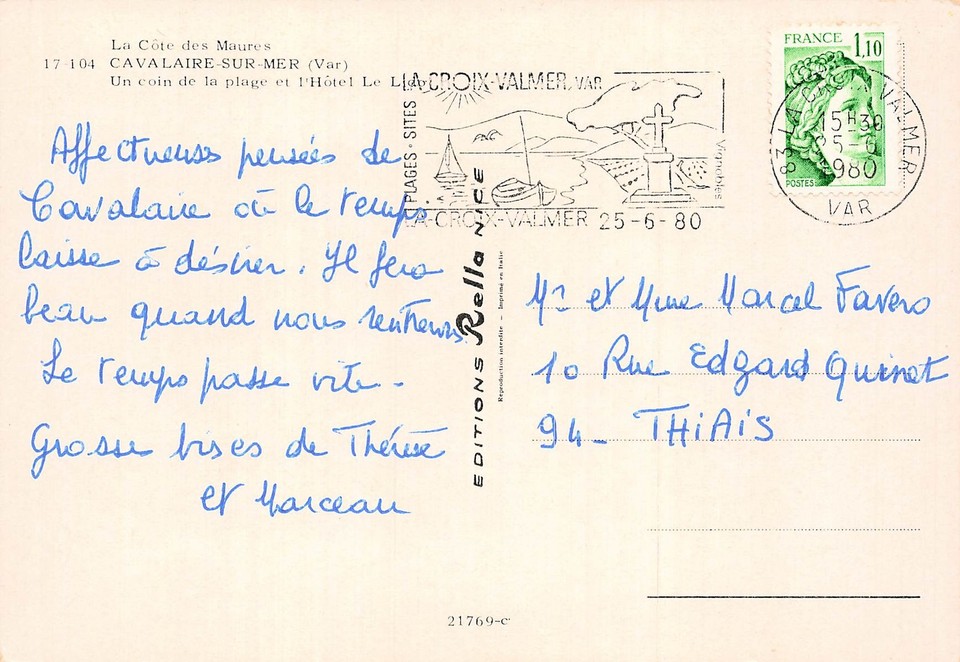 La Côte des Maures
17-104 CAVALAIRE-SUR-MER (Var)
Un coin de la plage et l'Hôtel Le Lido
LA CROIX-VALMER, VAR
PLAGES • SITES
Vignobles
LA-CROIX-VALMER 25-6-80
FRANCE 1,10
POSTES
83 LA CROIX VALMER
15H30
25-6
1980
VAR
Affectueuses pensées de
Cavalaire où le temps
laisse à désirer. Il fera
beau quand nous rentrerons.
Le temps passe vite -
Grosses bises de Thérèse
et Marceau
EDITIONS Rella NICE
Reproduction interdite - Imprimé en Italie
Mr et Mme Marcel Favero
10 Rue Edgard Quinet
94 - THiAiS
21769-c